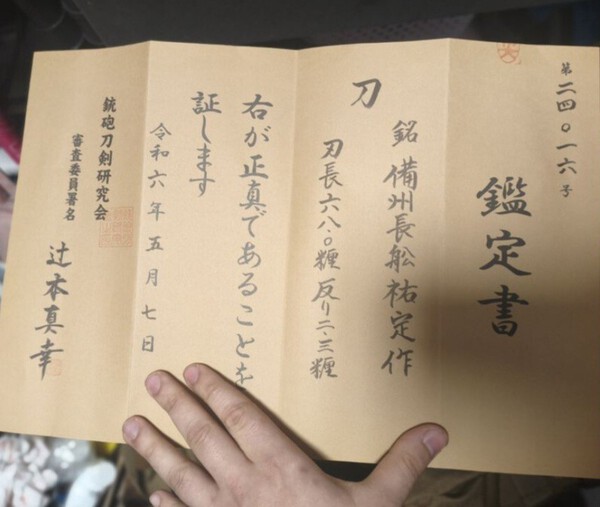 第二四〇一六号
鑑定書
刀
銘 備州長船祐定作
刃長六八.〇糎 反り二.三糎
右が正真であることを
証します
令和六年五月七日
銃砲刀剣研究会
審査委員署名
辻本真幸